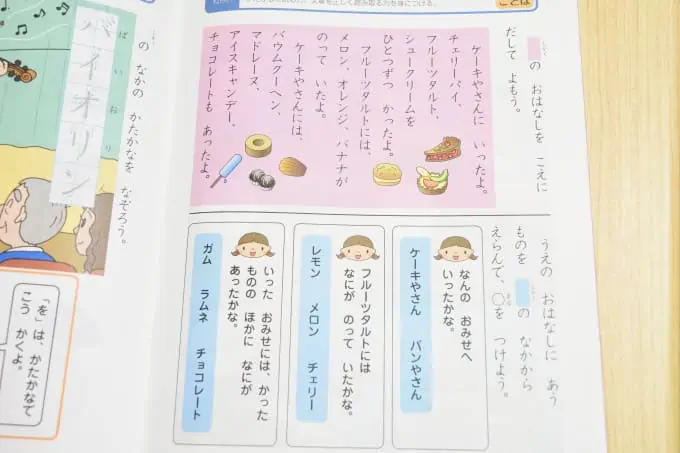 ことば
文章を正しく読み取る力を身につける。
の おはなしを こえに
だして よもう。
ケーキやさんに いったよ。
チェリーパイ、
フルーツタルト、
シュークリームを
ひとつずつ かったよ。
フルーツタルトには、
メロン、オレンジ、バナナが
のって いたよ。
ケーキやさんには、
バウムクーヘン、
マドレーヌ、
アイスキャンデー、
チョコレートも あったよ。
うえの おはなしに あう
ものを の なかから
えらんで、○を つけよう。
なんの おみせへ
いったかな。
ケーキやさん パンやさん
フルーツタルトには
なにが のって いたかな。
レモン メロン チェリー
いった おみせには、かった
ものの ほかに なにが
あったかな。
ガム ラムネ チョコレート
の なかの かたかなを なぞろう。
ばいおり
バイオリン
「を」は、かたかなで
こう かくよ。